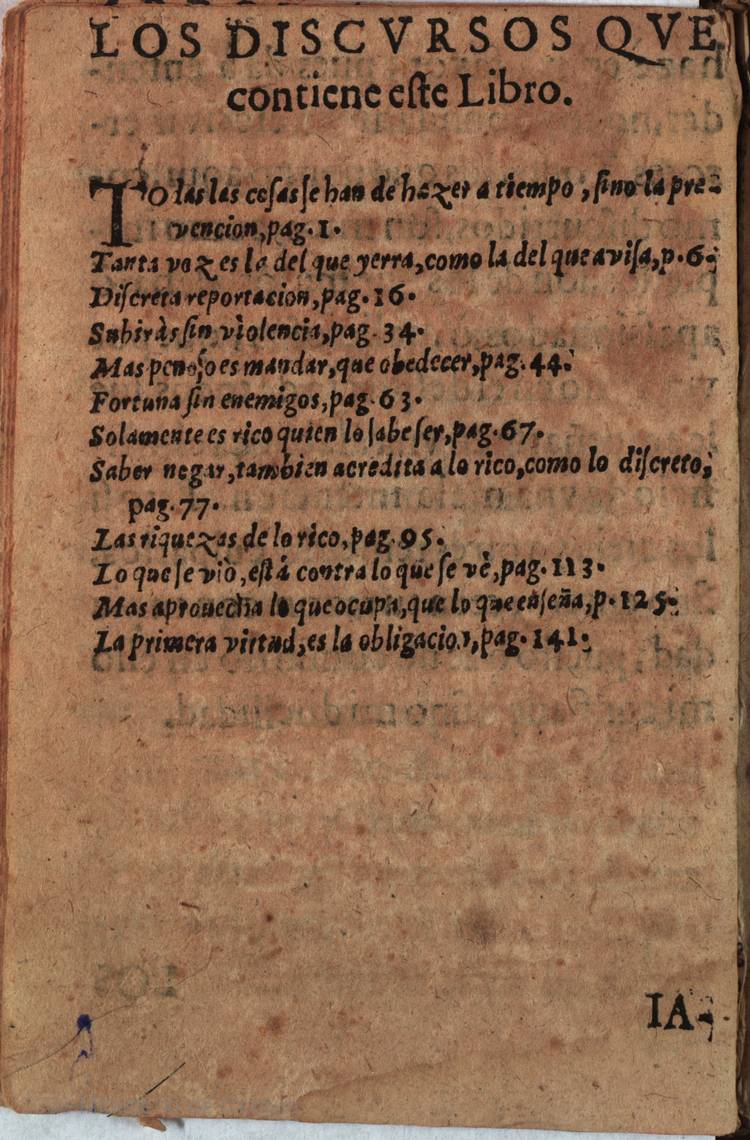 LOS DISCVRSOS QVE
contiene eſte Libro.
TOdas las coſas ſe han de hazer a tiempo, ſino la pre-
vencion, pag. 1.
Tanta voz es la del que yerra, como la del que aviſa, p. 6.
Diſcreta reportacion, pag. 16.
Subiràs ſin violencia, pag. 34.
Mas penoſo es mandar, que obedecer, pag. 44.
Fortuna ſin enemigos, pag. 63.
Solamente es rico quien lo ſabe ſer, pag. 67.
Saber negar, tambien acredita a lo rico, como lo diſcreto,
pag. 77.
Las riquezas de lo rico, pag. 95.
Lo que ſe viò, eſtá contra lo que ſe vè, pag. 113.
Mas aprouecha lo que ocupa, que lo que enſeña, p. 125.
La primera virtud, es la obligacion, pag. 141.
IA-